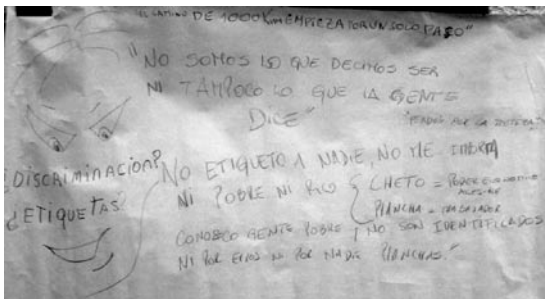 "EL CAMINO DE 1000 Km EMPIEZA POR UN SOLO PASO"
"NO SOMOS LO QUE DECIMOS SER
NI TAMPOCO LO QUE LA GENTE
DICE"
POR LA
¿DISCRIMINACION?
¿ETIQUETAS?
NO ETIQUETO A NADIE, NO ME IMPORTA
NI POBRE NI RICO
CHETO = PODER
PLANCHA = TRABAJADOR
CONOSCO GENTE POBRE, Y NO SON IDENTIFICADOS
NI POR ELLOS NI POR NADIE PLANCHAS."